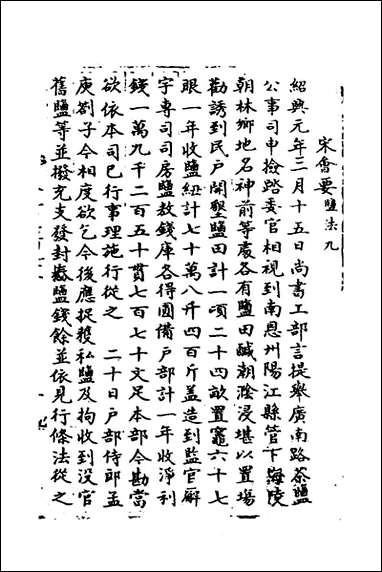 宋會要鹽法九
紹興元年三月十五日尚書工部言提舉廣南路茶鹽
公事司申檢踏委官相視到南恩州陽江縣管下海陵
朝林鄉地名神前等處各有鹽田鹹潮渰浸堪以置場
勸誘到民戶開墾鹽田計一頃二十四畝置竈六十七
眼一年收鹽紐計七十萬八千四百斤蓋造到監官廨
宇專司司房鹽敖錢庫各得圓備戶部計一年收淨利
錢一萬九千二百五十貫七百七十文足本部令勘當
欲依本司已行事理施行從之 二十日戶部侍郎孟
庾劄子今相度欲乞今後應捉獲私鹽及拘收到沒官
舊鹽等並撥充支發封樁鹽錢餘並依見行條法從之